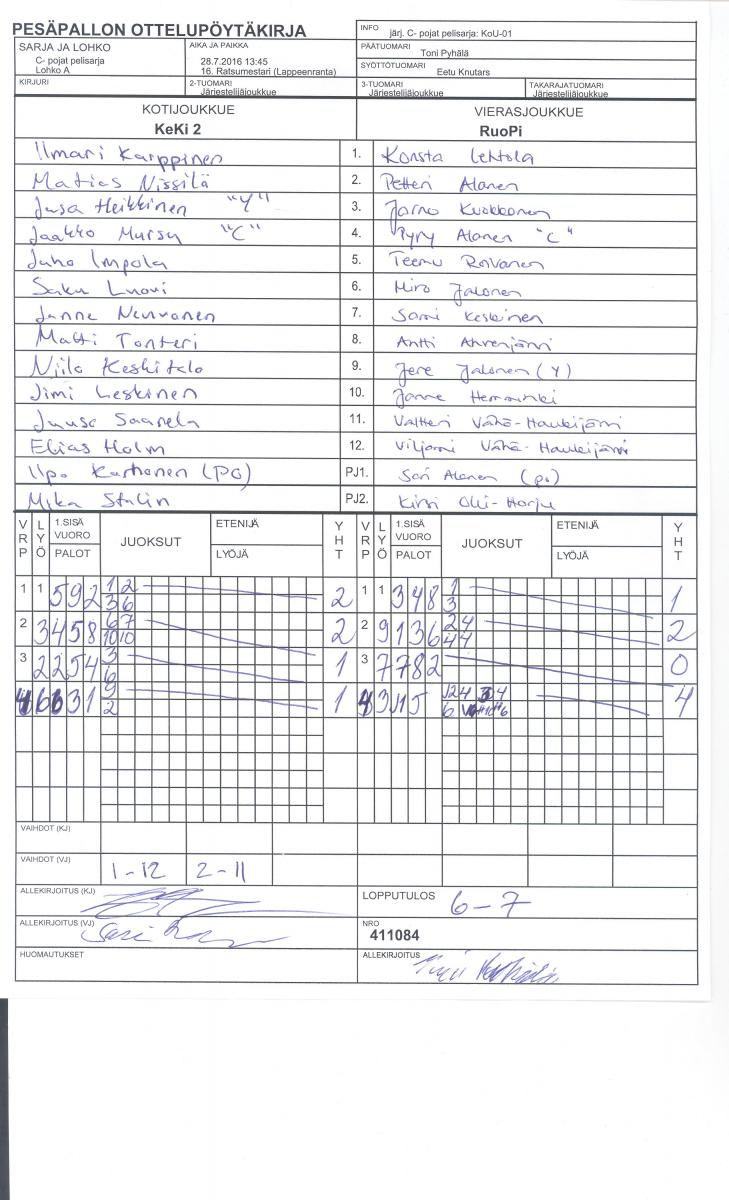 PESÄPALLON OTTELUPÖYTÄKIRJA
INFO järj. C- pojat pelisarja: KoU-01
SARJA JA LOHKO
C- pojat pelisarja
Lohko A
AIKA JA PAIKKA
28.7.2016 13:45
16. Ratsumestari (Lappeenranta)
PÄÄTUOMARI
Toni Pyhälä
SYÖTTÖTUOMARI
Eetu Knutars
KIRJURI
2-TUOMARI
Järjestelijäjoukkue
3-TUOMARI
Järjestelijäjoukkue
TAKARAJATUOMARI
Järjestelijäjoukkue
KOTIJOUKKUE VIERASJOUKKUE
KeKi 2 RuoPi
Ilmari Karppinen 1. Konsta Lehtola
Matias Nissilä 2. Petteri Alanen
Jusa Heikkinen "Y" 3. Jarno Kuokkanen
Jaakko Mursu "C" 4. Pyry Alanen "C"
Juho Impola 5. Teemu Roivanen
Saku Luovi 6. Miro Jalonen
Janne Neuvonen 7. Sami Keskinen
Matti Tonteri 8. Antti Ahvenjärvi
Niilo Keskitalo 9. Jere Jalonen (Y)
Jimi Leskinen 10. Janne Hemminki
Juuso Saarela 11. Valtteri Vähä-Haukijärvi
Elias Holm 12. Viljami Vähä-Haukijärvi
Ilpo Karhonen (PG) PJ1. Sari Alanen (pj)
Mika Stalin PJ2. Kirsi Olli-Harju
VRP LYÖ 1.SISÄ VUORO PALOT JUOKSUT ETENIJÄ LYÖJÄ YHT VRP LYÖ 1.SISÄ VUORO PALOT JUOKSUT ETENIJÄ LYÖJÄ YHT
1 1 5 9 2 1 2 2 1 1 3 4 8 1 1
3 6 3
2 3 4 5 8 6 7 2 2 9 1 3 6 2 4 2
10 10 4 4
3 2 2 5 4 3 1 3 7 7 8 2 0
6
4 6 6 3 1 9 1 4 3 11 5 12 4 3 4 4
2
VAIHDOT (KJ)
VAIHDOT (VJ) 1-12 2-11
ALLEKIRJOITUS (KJ) LOPPUTULOS 6-7
ALLEKIRJOITUS (VJ) NRO
411084
HUOMAUTUKSET ALLEKIRJOITUS